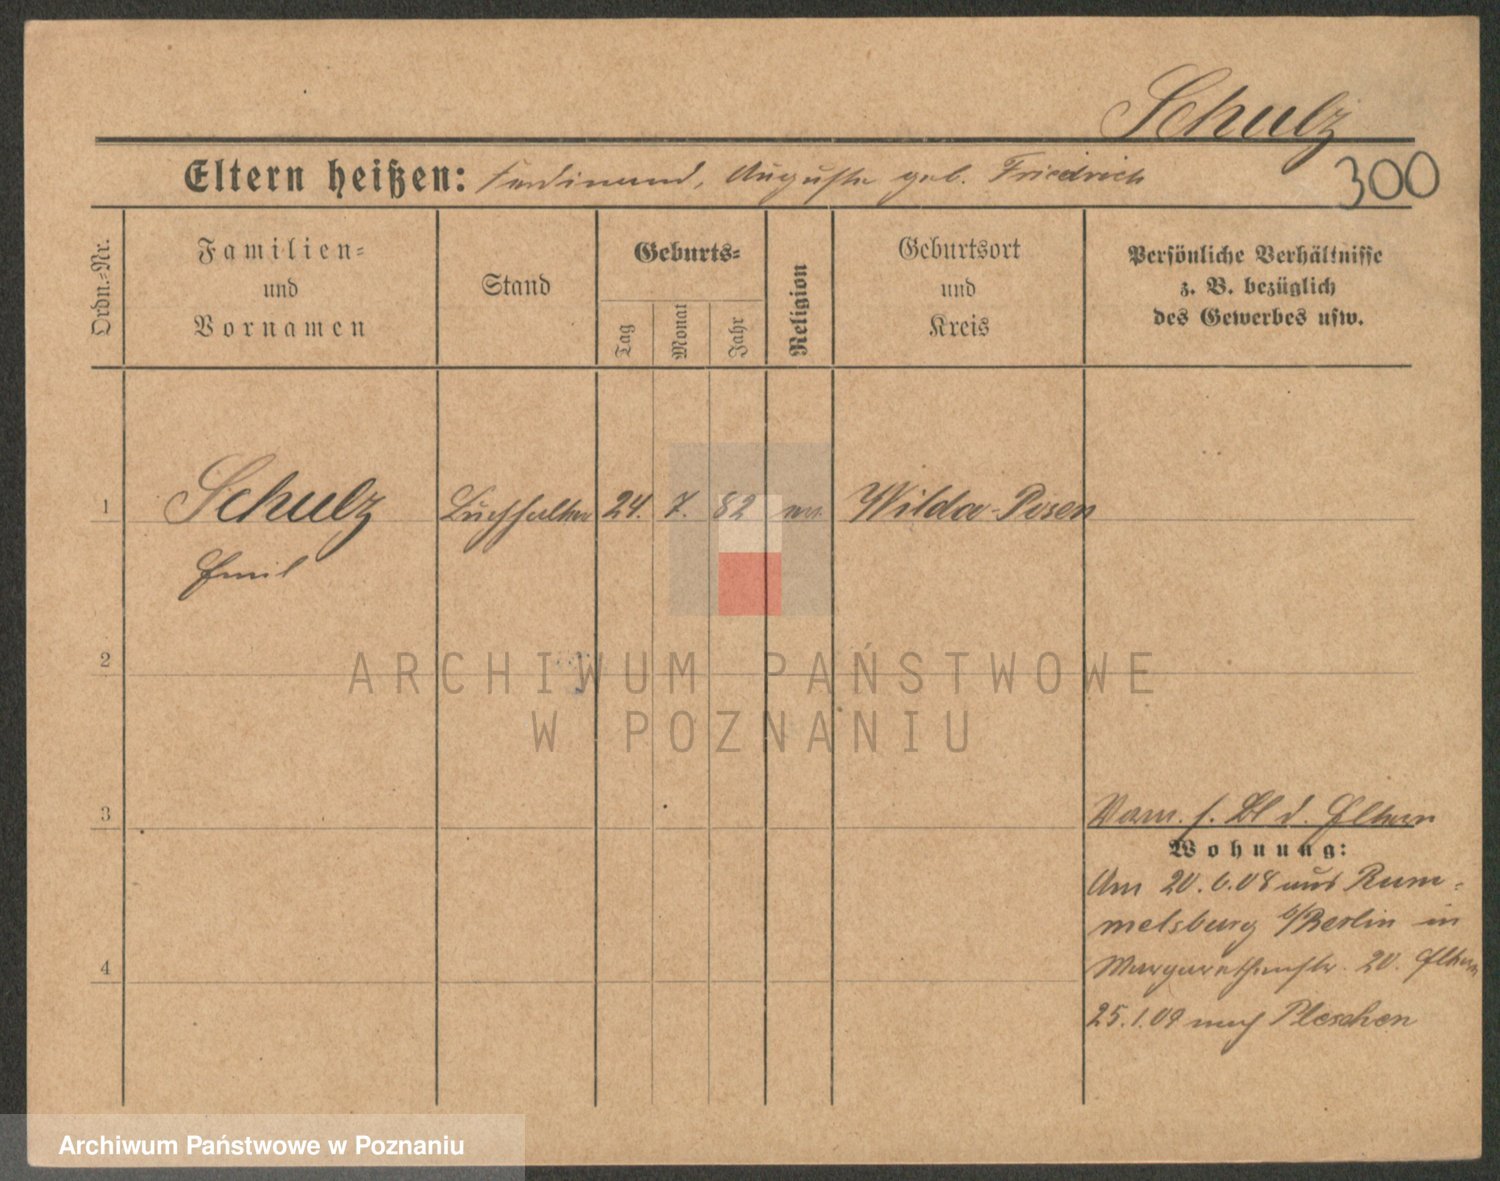 Schulz
Eltern heißen: Ferdinand, Auguste geb. Friedrich
300
Ordn.-Nr.
Familien-
und
Vornamen
Stand
Geburts-
Tag
Monat
Jahr
Religion
Geburtsort
und
Kreis
Persönliche Verhältnisse
z. B. bezüglich
des Gewerbes usw.
1 Schulz Buchhalter 24. 7. 82 ev. Wilda-Posen
Emil
2
ARCHIWUM PAŃSTWOWE
W POZNANIU
3
Vorm. s. Bl d. Eltern
Wohnung:
Am 20.6.08 aus Rum-
melsburg b/Berlin in
4
Margarethenstr. 20. Eltern
25.1.09 nach Pleschen
Archiwum Państwowe w Poznaniu